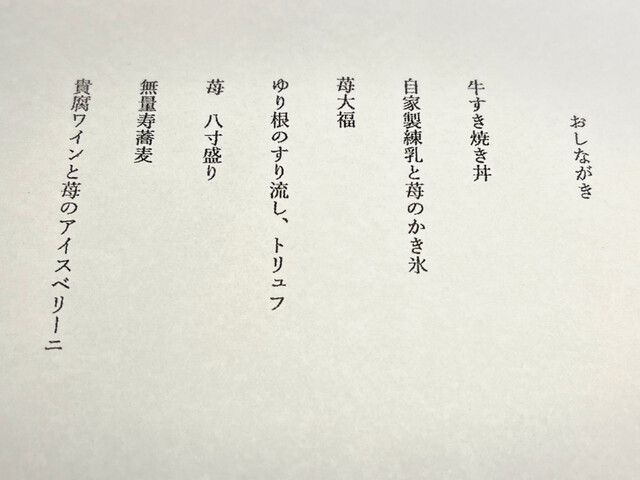 おしながき
牛すき焼き丼
自家製練乳と苺のかき氷
苺大福
ゆり根のすり流し、トリュフ
苺　八寸盛り
無量寿蕎麦
貴腐ワインと苺のアイスベリーニ